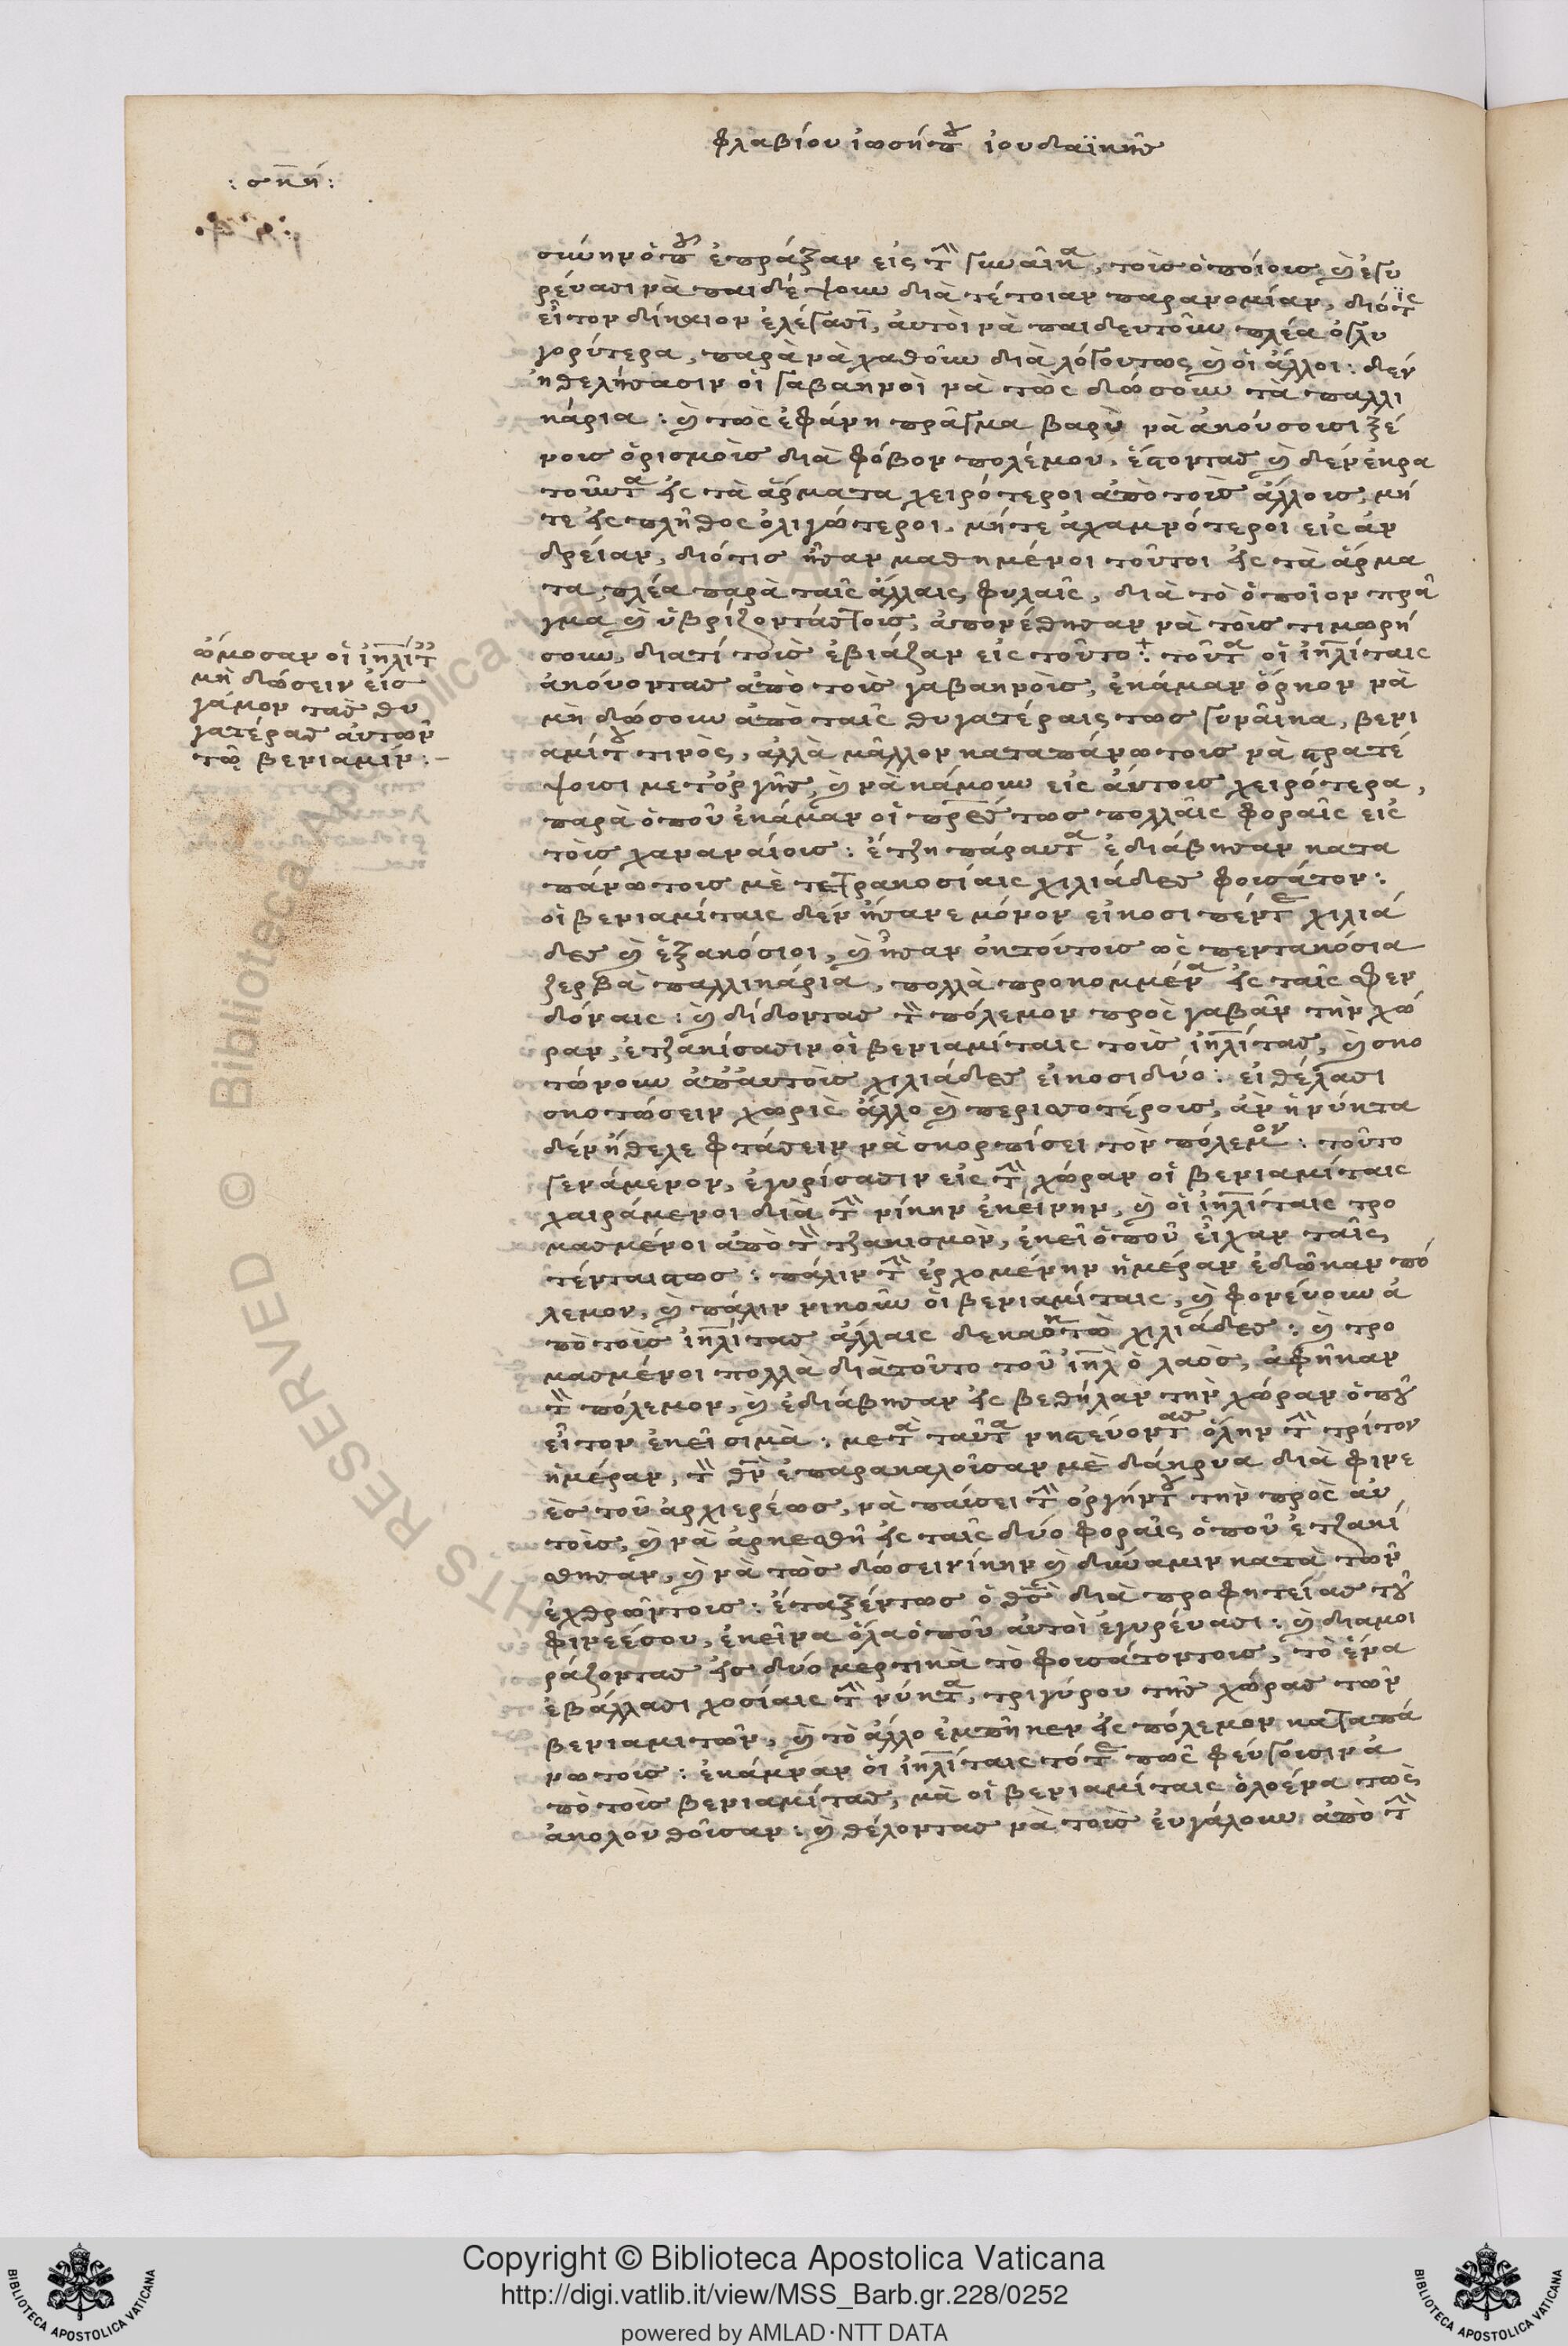 φλαβίου ἰωσήπου ἰουδαϊκῆς
: σημ :
σιώνηρ ὁποῦ ἐπράξαν εἰς τὴν γυναῖκα, τοὺς ὁποίους καὶ ἐγυ
ρεύασι νὰ παιδέψουν διὰ τέτοιαν παρανομίαν, διότις
εἶτον δίκαιον ἐλέγασι, αὐτοὶ νὰ παιδευτοῦν πλέα ὀγλυ
γορύτερα, παρὰ νὰ χαθοῦν διὰ λόγουτως καὶ οἱ ἄλλοι: δὲν
ἠθελήσασιν οἱ γαβαηνοὶ νὰ τῶς δώσουν τὰ παλλι
κάρια: καὶ τῶς ἐφάνη πρᾶγμα βαρὺ νὰ ἀκούσουσι ξέ
νους ὁρισμοὺς διὰ φόβον πολέμου, ἔστοντας καὶ δὲν ἐκρα
τοῦντα εἰς τὰ ἄρματα χειρότεροι ἀπὸ τοὺς ἄλλους, μή
τε εἰς πλῆθος ὀλιγώτεροι, μήτε ἀχαμνότεροι εἰς ἀν
δρείαν, διότις ἦσαν μαθημένοι τοῦτοι εἰς τὰ ἄρμα
τα πλέα παρὰ ταῖς ἄλλαις φυλαῖς, διὰ τὸ ὁποῖον πρᾶ
γμα καὶ ὑβρίζοντάς τους, ἀπονέθησαν νὰ τοὺς τιμωρή
σουν, διατὶ τοὺς ἐβιάζαν εἰς τοῦτο: τοῦτα οἱ ἰηλίταις
ἀκούοντας ἀπὸ τοὺς γαβαηνοὺς, ἐκάμαν ὅρκον νὰ
μὴ δώσουν ἀπὸ ταῖς θυγατέραις τως γυναῖκα, βενι
αμίτου τινὸς, ἀλλὰ μᾶλλον καταπάνω τους νὰ στρατέ
ψουσι μετ' ὀργῆς, καὶ νὰ κάμουν εἰς αὐτοὺς χειρότερα,
παρὰ ὁποῦ ἐκάμαν οἱ πρες τως πολλαῖς φοραῖς εἰς
τοὺς χαναναίους: ἔτζη πάραυτα ἐδιάβησαν κατα
πάνω τους μὲ τετρακοσίαις χιλιάδες φουσάτον:
οἱ βενιαμίταις δὲν ἤσανε μόνον εἰκοσι πέντε χιλιά
δες καὶ ἑξακόσιοι, καὶ ἦσαν ὀκ τούτους ὡς πεντακόσια
ζερβὰ παλλικάρια, πολλὰ προκομμένα εἰς ταῖς σφεν
δόναις: καὶ δίδοντας τὸν πόλεμον πρὸς γαβὰν τὴν χώ
ραν, ἐτζακίσασιν οἱ βενιαμίταις τοὺς ἰηλίτας, καὶ σκο
τώνουν ἀπ' αὐτοὺς χιλιάδες εἰκοσιδύο: εἰ θέλασι
σκοτώσειν χωρὶς ἄλλο καὶ περισσοτέρους, ἂν ἡ νύκτα
δὲν ἤθελε φτάσειν νὰ σκορπίσει τὸν πόλεμον: τοῦτο
γενάμενον, ἐγυρίσασιν εἰς τὴν χώραν οἱ βενιαμίταις
χαιράμενοι διὰ τὴν νίκην ἐκείνην, καὶ οἱ ἰηλίταις τρο
μασμένοι ἀπὸ τὸν τζακισμὸν, ἐκεῖ ὁποῦ εἶχαν ταῖς
τένταις τως: πάλιν τὴν ἐρχομένην ἡμέραν ἐδῶκαν πό
λεμον, καὶ πάλιν νικοῦν οἱ βενιαμίταις, καὶ φονεύουν ἀ
πὸ τοὺς ἰηλίτας ἄλλαις δεκαοκτὼ χιλιάδες: καὶ τρο
μασμένοι πολλὰ διὰ τοῦτο τοῦ ἰηλ ὁ λαὸς, ἀφῆκαν
τὸν πόλεμον, καὶ ἐδιάβησαν εἰς βεθήλαν τὴν χώραν ὁποῦ
εἶτον ἐκεῖ σιμὰ: μετὰ ταῦτα νηστεύοντας ὅλην τὴν τρίτον
ἡμέραν, τὸν θν ἐπαρακαλοῦσαν μὲ δάκρυα διὰ φινε
ὲς τοῦ ἀρχιερέως, νὰ παύσει τὴν ὀργήντου τὴν πρὸς αὐ
τοὺς, καὶ νὰ ἀρκεσθῆ εἰς ταῖς δύο φοραῖς ὁποῦ ἐτζακί
σθησαν, καὶ νὰ τῶς δώσει νίκην καὶ δύναμιν κατὰ τῶν
ἐχθρῶντους: ἔταξέντως ὁ θεὸς διὰ προφητείας τοῦ
φινεέσου, ἐκεῖνα ὅλα ὁποῦ αὐτοὶ ἐγυρέυασι: καὶ διαμοι
ράζοντας εἰς δύο μερτικὰ τὸ φουσάτοντους, τὸ ἕνα
ἐβάλλασι χοσίαις τὴν νύκτα, τριγύρου τῆς χώρας τῶν
βενιαμιτῶν, καὶ τὸ ἄλλο ἐμπῆκεν εἰς πόλεμον καταπά
νω τους: ἐκάμναν οἱ ἰηλίταις τότε πῶς φεύγουσιν ἀ
πὸ τοὺς βενιαμίτας, μὰ οἱ βενιαμίταις ὁλοένα τῶς
ἀκολουθοῦσαν: καὶ θέλοντας νὰ τοὺς ἐυγάλουν ἀπὸ τὴν
ὤμοσαν οἱ ἰηλίται
μὴ δώσειν εἰς
γάμον τὰς θυ
γατέρας αὐτῶν
τῷ βενιαμίν:-
Copyright © Biblioteca Apostolica Vaticana
http://digi.vatlib.it/view/MSS_Barb.gr.228/0252
powered by AMLAD·NTT DATA